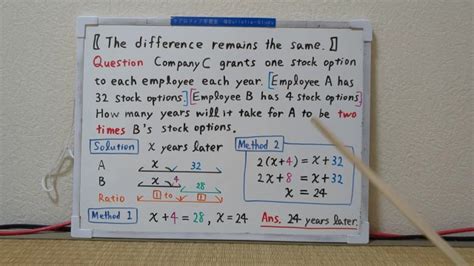 〖 The difference remains the same. 〗
Question Company C grants one stock option
to each employee each year. [Employee A has
32 stock options] [Employee B has 4 stock options]
How many years will it take for A to be two
times B's stock options.
Solution x years later
A x 32
B x 4 28
Ratio 1 to 1
Method 1 x + 4 = 28, x = 24
Method 2
2(x+4) = x+32
2x+8 = x+32
x = 24
Ans. 24 years later.